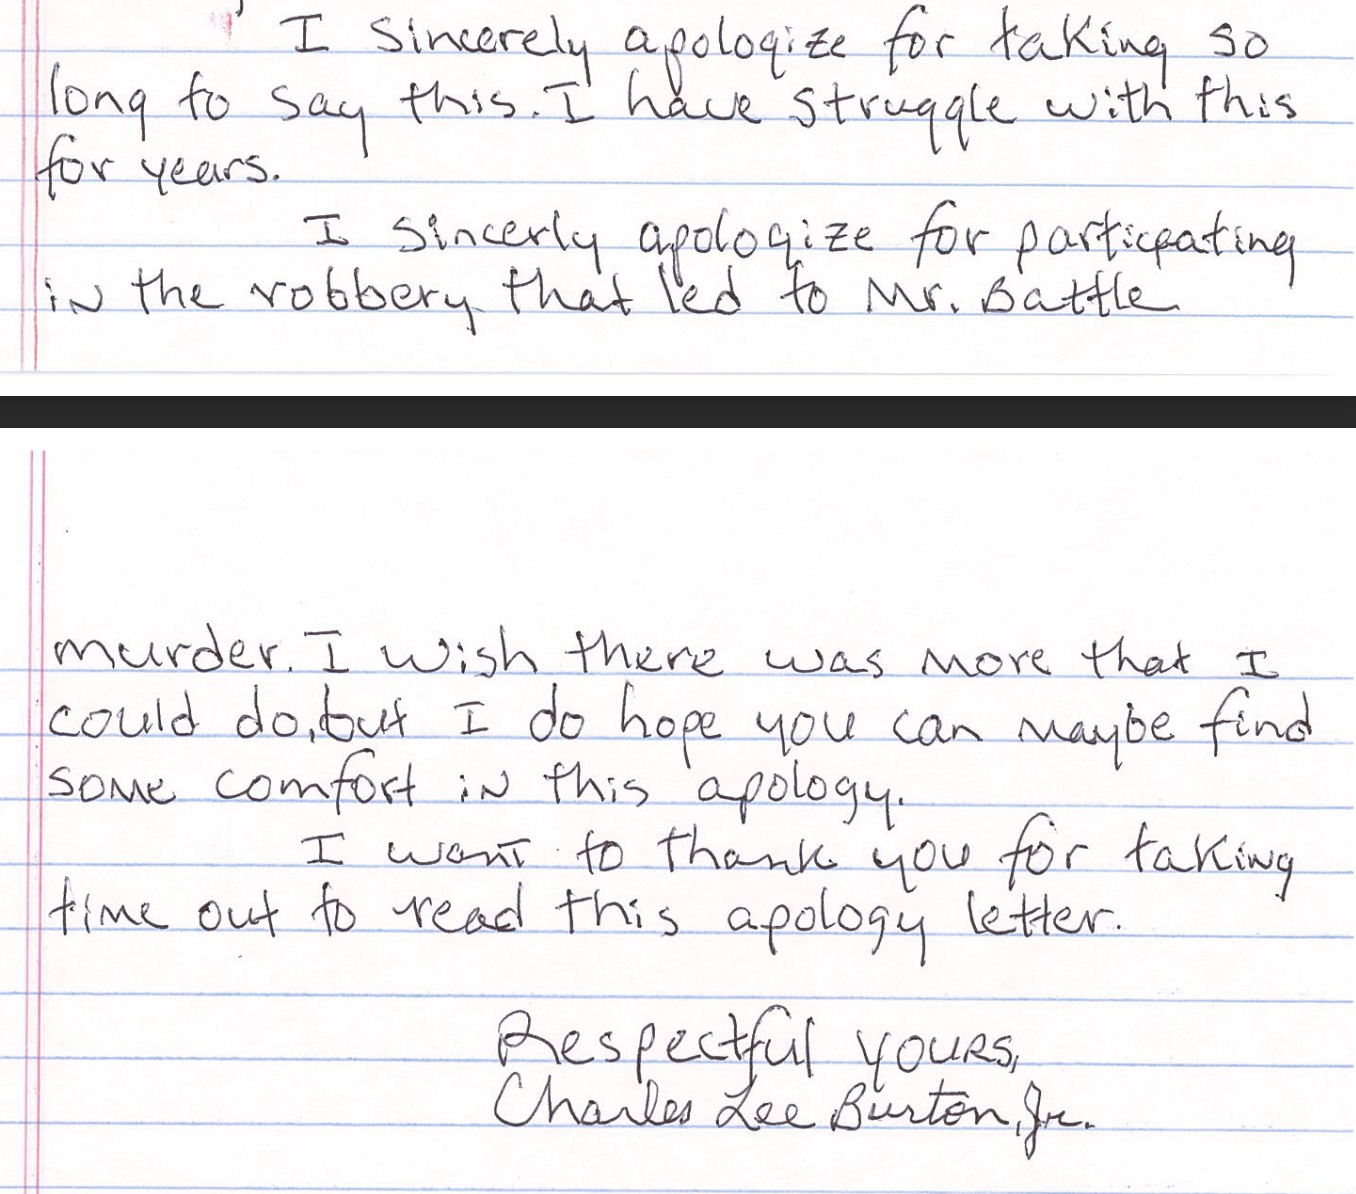 I sincerely apologize for taking so
long to say this. I have struggle with this
for years.
I sincerly apologize for particpating
in the robbery that led to Mr. Battle
murder. I wish there was more that I
could do, but I do hope you can maybe find
some comfort in this apology.
I want to thank you for taking
time out to read this apology letter.
Respectful yours,
Charles Lee Burton, Jr.